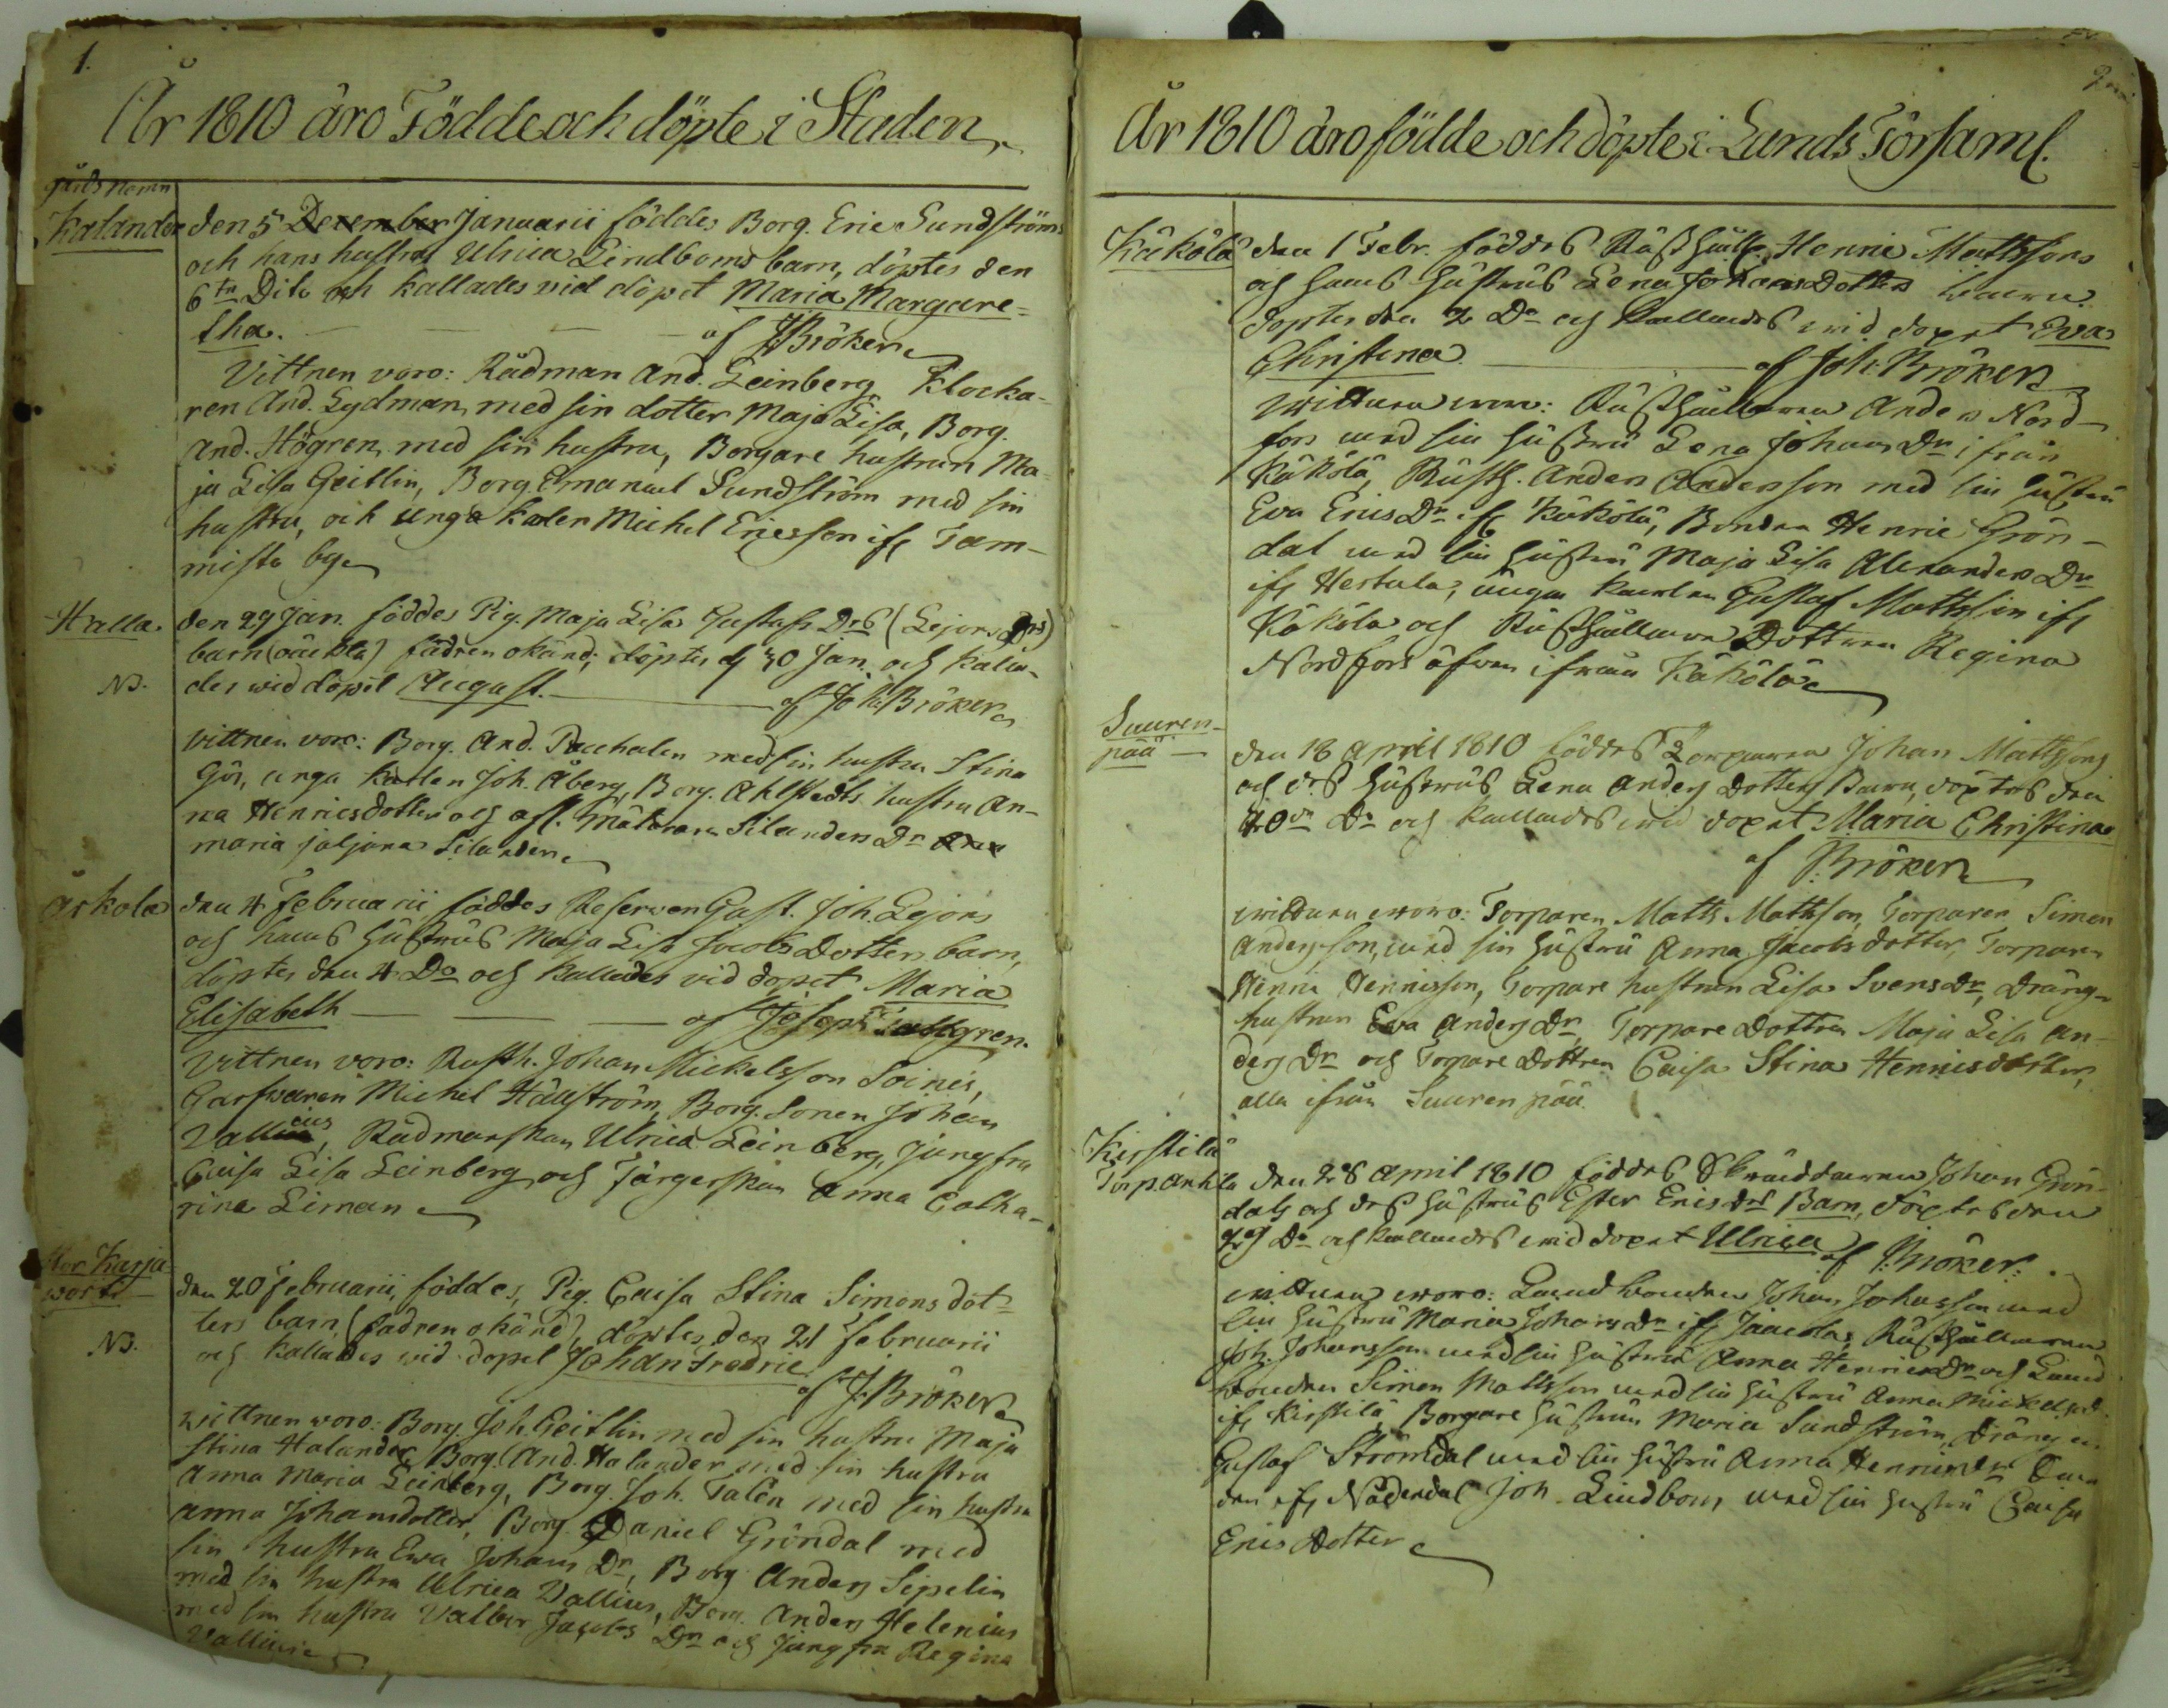 1.
År 1810 äro Födde och döpte i Staden
gårds Namn
Kalandra
den 5 December Januarii föddes Borg. Eric Sundströms
och hans hustrus Ulrica Lindboms barn, döptes den
6te Dito och kallades vid döpet Maria Margare=
tha. — — — af J: Bröker
Vittnen voro: Rådman And. Leinberg, Klocka-
ren And. Lydman, med sin dotter Maja Lisa, Borg.
And. Högren, med sin hustru, Borgare hustrun Ma-
ja Lisa Geitlin, Borg. Emanuel Sundström med sin
hustru, och unga karlen Michel Ericsson ifr Tam-
misto by
Halla.
den 29 Jan. föddes Pig. Maja Lisa Gustafs Drs (Lejons Drs)
barn (oäckta) fadren okänd; döptes d. 30 Jan. och kalla-
NB.
des wid döpet August. — af Joh: Bröker
vittnen voro: Borg. And. Pacchalen med sin hustru Stina
Gös, unga karlen Joh. Åberg, Borg. Ahlstedts hustru An-
na Henricsdotter och afl. Målaren Silanders Dr
maria juljana Silander
Arkola
den 4 Februarii föddes Reserven Gust. Joh. Lejons
och hans hustrus Maja Lisa Jacobs Dotters barn,
döptes den 4 Do och kallades vid dopet Maria
Elisabeth — — — af Joseph Tallgren.
Vittnen voro: Rusth. Johan Mickelsson Soinis,
Garfvaren Michel Hällström, Borg. Sonen Johan
Vallenius, Rådmanskan Ulrica Leinberg, jungfru
Caisa Lisa Leinberg och Färgerskan Anna Catha-
rina Liman
Stor Karja
worti
den 20 Februarii, föddes, Pig. Caisa Stina Simonsdot=
ters barn, (fadren okänd), döptes den 21 Februarii
NB.
och kallades wid dopet Johan Fredric
af J: Bröker
wittnen woro: Borg. Joh. Geitlin med sin hustru Maja
Stina Halander, Borg. And. Halander med sin hustru
Anna Maria Leinberg, Borg. Joh. Talén med sin hustru
Anna Johansdotter, Borg. Daniel Gröndal med
sin hustru Ewa Johans Dr, Borg. Anders Sipelin
med sin hustru Ulrica Vallius, Borg. Anders Helenius
med sin hustru Valbor Jacobs Dr och Jungfru Regina
Vallius
År 1810 äro födde och döpte i Lunds Församl.
Käkölä
den 1 Febr. föddes Rusthåll. Henric Mattssons
och hans hustrus Lena Johans Dotters barn.
döptes den 2 Do och kallades wid dopet Ewa
Christina. — af Joh: Bröker
wittnen woro: Rusthållaren Anders Nord-
fors med sin hustru Lena Johans Dr ifrån
Käkölä, Rusth. Anders Andersson med sin hustru
Eva Erics Dr ifr Käkölä, Bonden Henric Grön-
dal med sin hustru Maja Lisa Alexanders Dr
ifr Hertula, unga karlen Gustaf Mattsson ifr
Käkölä och Rusthållarens Dottren Regina
Nordfors äfven ifrån Käkölä
Suuren-
pää
den 18 April 1810 föddes Torparen Johan Mattssons
och dess hustrus Lena Anders Dotters Barn, döptes den
20de Do och kallades wid dopet Maria Christina
af J: Bröker
wittnen woro: Torparen Matts Mattsson, Torparen Simon
Andersson, med sin hustru Anna Jacobs dotter, Torparen
Henric Henricsson, Torpare hustrun Lisa Svens Dr, Dräng-
hustrun Eva Anders Dr, Torpare Dottren Maja Lisa An-
ders Dr och Torpare Dottren Caisa Stina Henricsdotter,
alla ifrån Suurenpää.
Kirstilä
Torp. Anhila
den 28 April 1810 föddes Skräddaren Johan Grön-
dals och dess hustrus Ester Erics drs Barn, döptes den
29 Do och kallades wid dopet Ulrica
af J: Bröker.
wittnen woro: Landbonden Johan Johansson med
sin hustru Maria Johans Dr ifr Jaacola, Rusthållaren
Joh. Johansson med sin hustru Anna Henrics Dr och Land
bonden Simon Mattsson med sin hustru Anna Mickelsd.
ifr Kirstilä, Borgare hustrun Maria Sundström, Drängen
Gustaf Strömdal med sin hustru Anna Henrics Dr
ifr Nådendal Joh. Lindbom med sin hustru Caisa
Erics dotter